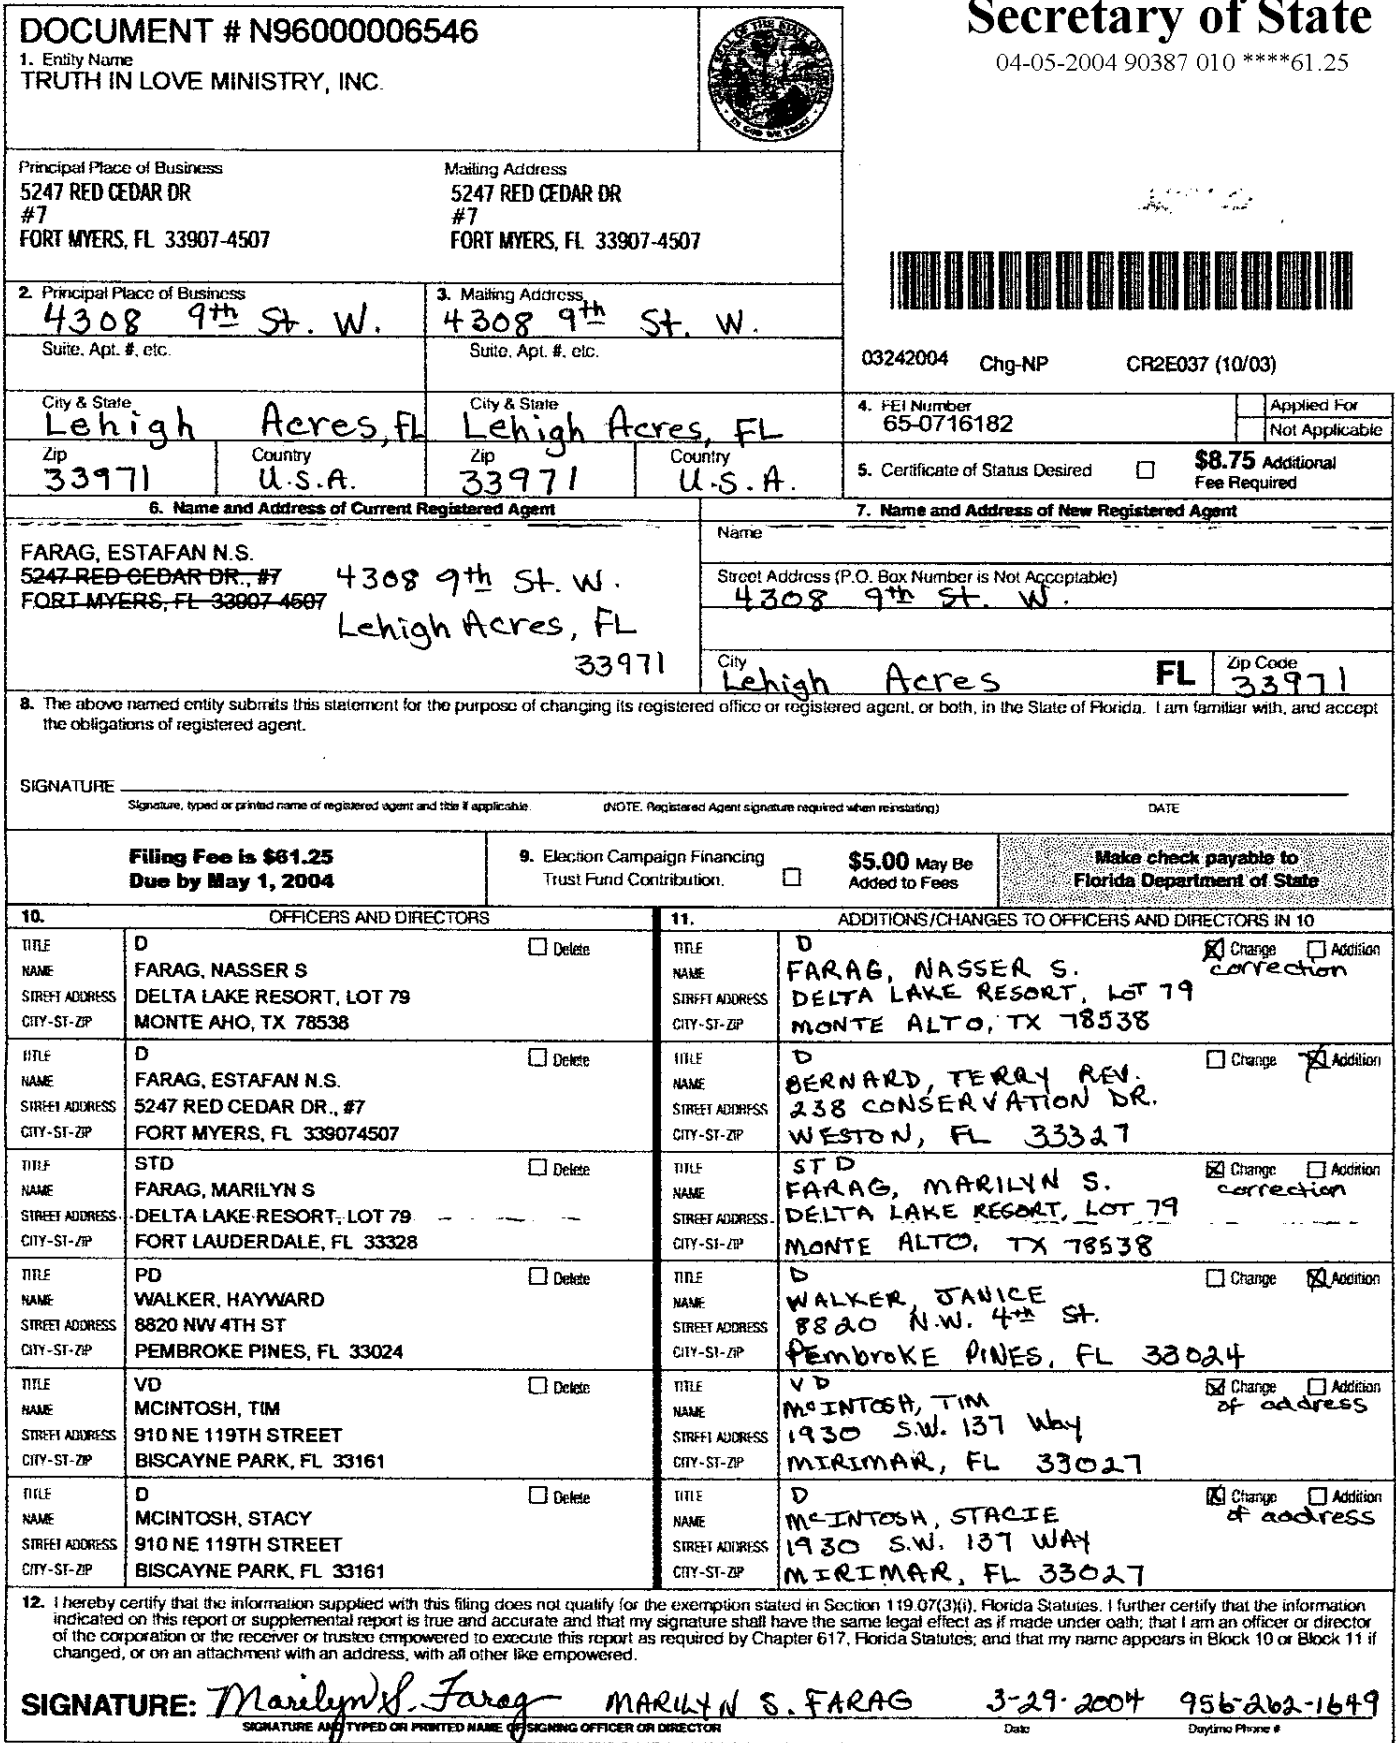 Secretary of State
04-05-2004 90387 010 ****61.25
DOCUMENT # N96000006546
1. Entity Name
TRUTH IN LOVE MINISTRY, INC.
Principal Place of Business
5247 RED CEDAR DR
#7
FORT MYERS, FL 33907-4507
Mailing Address
5247 RED CEDAR DR
#7
FORT MYERS, FL 33907-4507
2. Principal Place of Business
4308 9th St. W.
3. Mailing Address
4308 9th St. W.
Suite, Apt. #, etc.
Suite, Apt. #, etc.
03242004 Chg-NP CR2E037 (10/03)
City & State
Lehigh Acres, FL
City & State
Lehigh Acres, FL
Zip
33971
Country
U.S.A.
Zip
33971
Country
U.S.A.
4. FEI Number
65-0716182
Applied For
Not Applicable
5. Certificate of Status Desired
$8.75 Additional
Fee Required
6. Name and Address of Current Registered Agent
FARAG, ESTAFAN N.S.
5247 RED CEDAR DR., #7
FORT MYERS, FL 33907-4507
4308 9th St. W.
Lehigh Acres, FL
33971
7. Name and Address of New Registered Agent
Name
Street Address (P.O. Box Number is Not Acceptable)
4308 9th St. W.
City
Lehigh Acres
FL
Zip Code
33971
8. The above named entity submits this statement for the purpose of changing its registered office or registered agent, or both, in the State of Florida. I am familiar with, and accept
the obligations of registered agent.
SIGNATURE
Signature, typed or printed name of registered agent and title if applicable. (NOTE. Registered Agent signature required when reinstating) DATE
Filing Fee is $61.25
Due by May 1, 2004
9. Election Campaign Financing
Trust Fund Contribution.
$5.00 May Be
Added to Fees
Make check payable to
Florida Department of State
10. OFFICERS AND DIRECTORS
TITLE D Delete
NAME FARAG, NASSER S
STREET ADDRESS DELTA LAKE RESORT, LOT 79
CITY-ST-ZIP MONTE AHO, TX 78538
TITLE D Delete
NAME FARAG, ESTAFAN N.S.
STREET ADDRESS 5247 RED CEDAR DR., #7
CITY-ST-ZIP FORT MYERS, FL 339074507
TITLE STD Delete
NAME FARAG, MARILYN S
STREET ADDRESS DELTA LAKE RESORT, LOT 79
CITY-ST-ZIP FORT LAUDERDALE, FL 33328
TITLE PD Delete
NAME WALKER, HAYWARD
STREET ADDRESS 8820 NW 4TH ST
CITY-ST-ZIP PEMBROKE PINES, FL 33024
TITLE VD Delete
NAME MCINTOSH, TIM
STREET ADDRESS 910 NE 119TH STREET
CITY-ST-ZIP BISCAYNE PARK, FL 33161
TITLE D Delete
NAME MCINTOSH, STACY
STREET ADDRESS 910 NE 119TH STREET
CITY-ST-ZIP BISCAYNE PARK, FL 33161
11. ADDITIONS/CHANGES TO OFFICERS AND DIRECTORS IN 10
TITLE D Change Addition
NAME FARAG, NASSER S. correction
STREET ADDRESS DELTA LAKE RESORT, LOT 79
CITY-ST-ZIP MONTE ALTO, TX 78538
TITLE D Change Addition
NAME BERNARD, TERRY REV.
STREET ADDRESS 238 CONSERVATION DR.
CITY-ST-ZIP WESTON, FL 33327
TITLE STD Change Addition
NAME FARAG, MARILYN S. correction
STREET ADDRESS DELTA LAKE RESORT, LOT 79
CITY-ST-ZIP MONTE ALTO, TX 78538
TITLE D Change Addition
NAME WALKER, JANICE
STREET ADDRESS 8820 N.W. 4th St.
CITY-ST-ZIP PEmbroKE PINES, FL 33024
TITLE VD Change Addition
NAME McINTOSH, TIM of address
STREET ADDRESS 1930 S.W. 137 Way
CITY-ST-ZIP MIRIMAR, FL 33027
TITLE D Change Addition
NAME McINTOSH, STACIE of address
STREET ADDRESS 1930 S.W. 137 WAY
CITY-ST-ZIP MIRIMAR, FL 33027
12. I hereby certify that the information supplied with this filing does not qualify for the exemption stated in Section 119.07(3)(i), Florida Statutes. I further certify that the information
indicated on this report or supplemental report is true and accurate and that my signature shall have the same legal effect as if made under oath; that I am an officer or director
of the corporation or the receiver or trustee empowered to execute this report as required by Chapter 617, Florida Statutes; and that my name appears in Block 10 or Block 11 if
changed, or on an attachment with an address, with all other like empowered.
SIGNATURE: Marilyn S. Farag MARILYN S. FARAG 3-29-2004 956-262-1649
SIGNATURE AND TYPED OR PRINTED NAME OF SIGNING OFFICER OR DIRECTOR Date Daytime Phone #